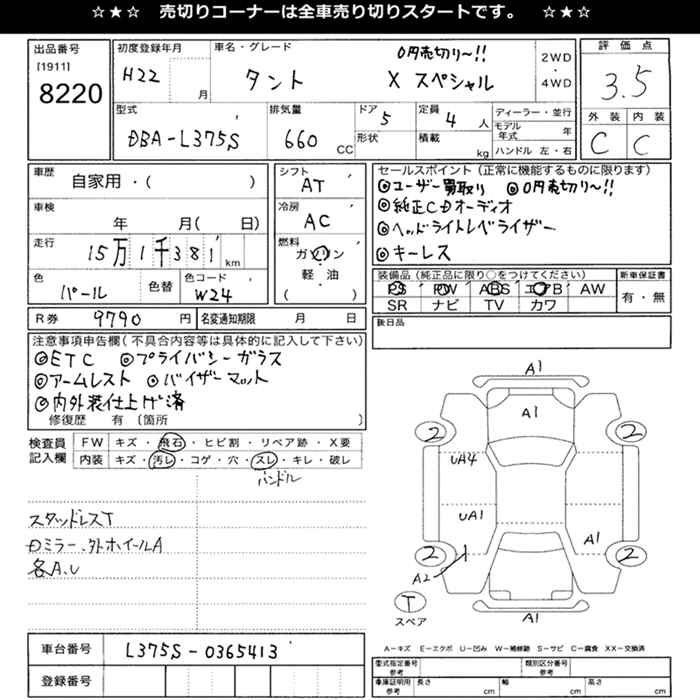 ☆★☆ 売切りコーナーは全車売り切りスタートです。 ☆★☆
出品番号
[1911]
8220
初度登録年月
H22 月
車名・グレード
0円売切り～!!
タント X スペシャル
2WD
・
4WD
評価点
3.5
外装 内装
C C
型式
DBA-L375S
排気量
660 CC
ドア
5
形状
定員
4 人
積載
kg
ディーラー・並行
モデル年式 年
ハンドル 左・右
車歴
自家用・( )
車検
年 月( 日)
走行
15万1千381 km
色
パール
色替
色コード
W24
シフト
AT
冷房
AC
燃料
ガソリン
軽・油
( )
セールスポイント(正常に機能するものに限ります)
◎ユーザー買取り ◎0円売切り～!!
◎純正CDオーディオ
◎ヘッドライトレベライザー
◎キーレス
装備品(純正品に限り○をつけてください)
PS PW ABS エアB AW
SR ナビ TV カワ
新車保証書
有・無
後日品
R券 9790 円
名変通知期限 月 日
注意事項申告欄(不具合内容等は具体的に記入して下さい)
◎ETC ◎プライバシーガラス
◎アームレスト ◎バイザーマット
◎内外装仕上げ済
修復歴 有 〔箇所 〕
検査員
記入欄
FW キズ・飛石・ヒビ割・リペア跡・X要
内装 キズ・汚レ・コゲ・穴・スレ・キレ・破レ
ハンドル
スタッドレスT
Dミラー.外ホイールA
各A.U
車台番号 L375S-0365413
登録番号
A1
A1
2 2
UA4
UA1
A1
2 2
A2
T
スペア
A1
A-キズ E-エクボ U-凹み W-補修跡 S-サビ C-腐食 XX-交換済
型式指定番号
参考
類別区分番号
参考
車庫証明用
参考
長さ cm
幅 cm
高さ cm